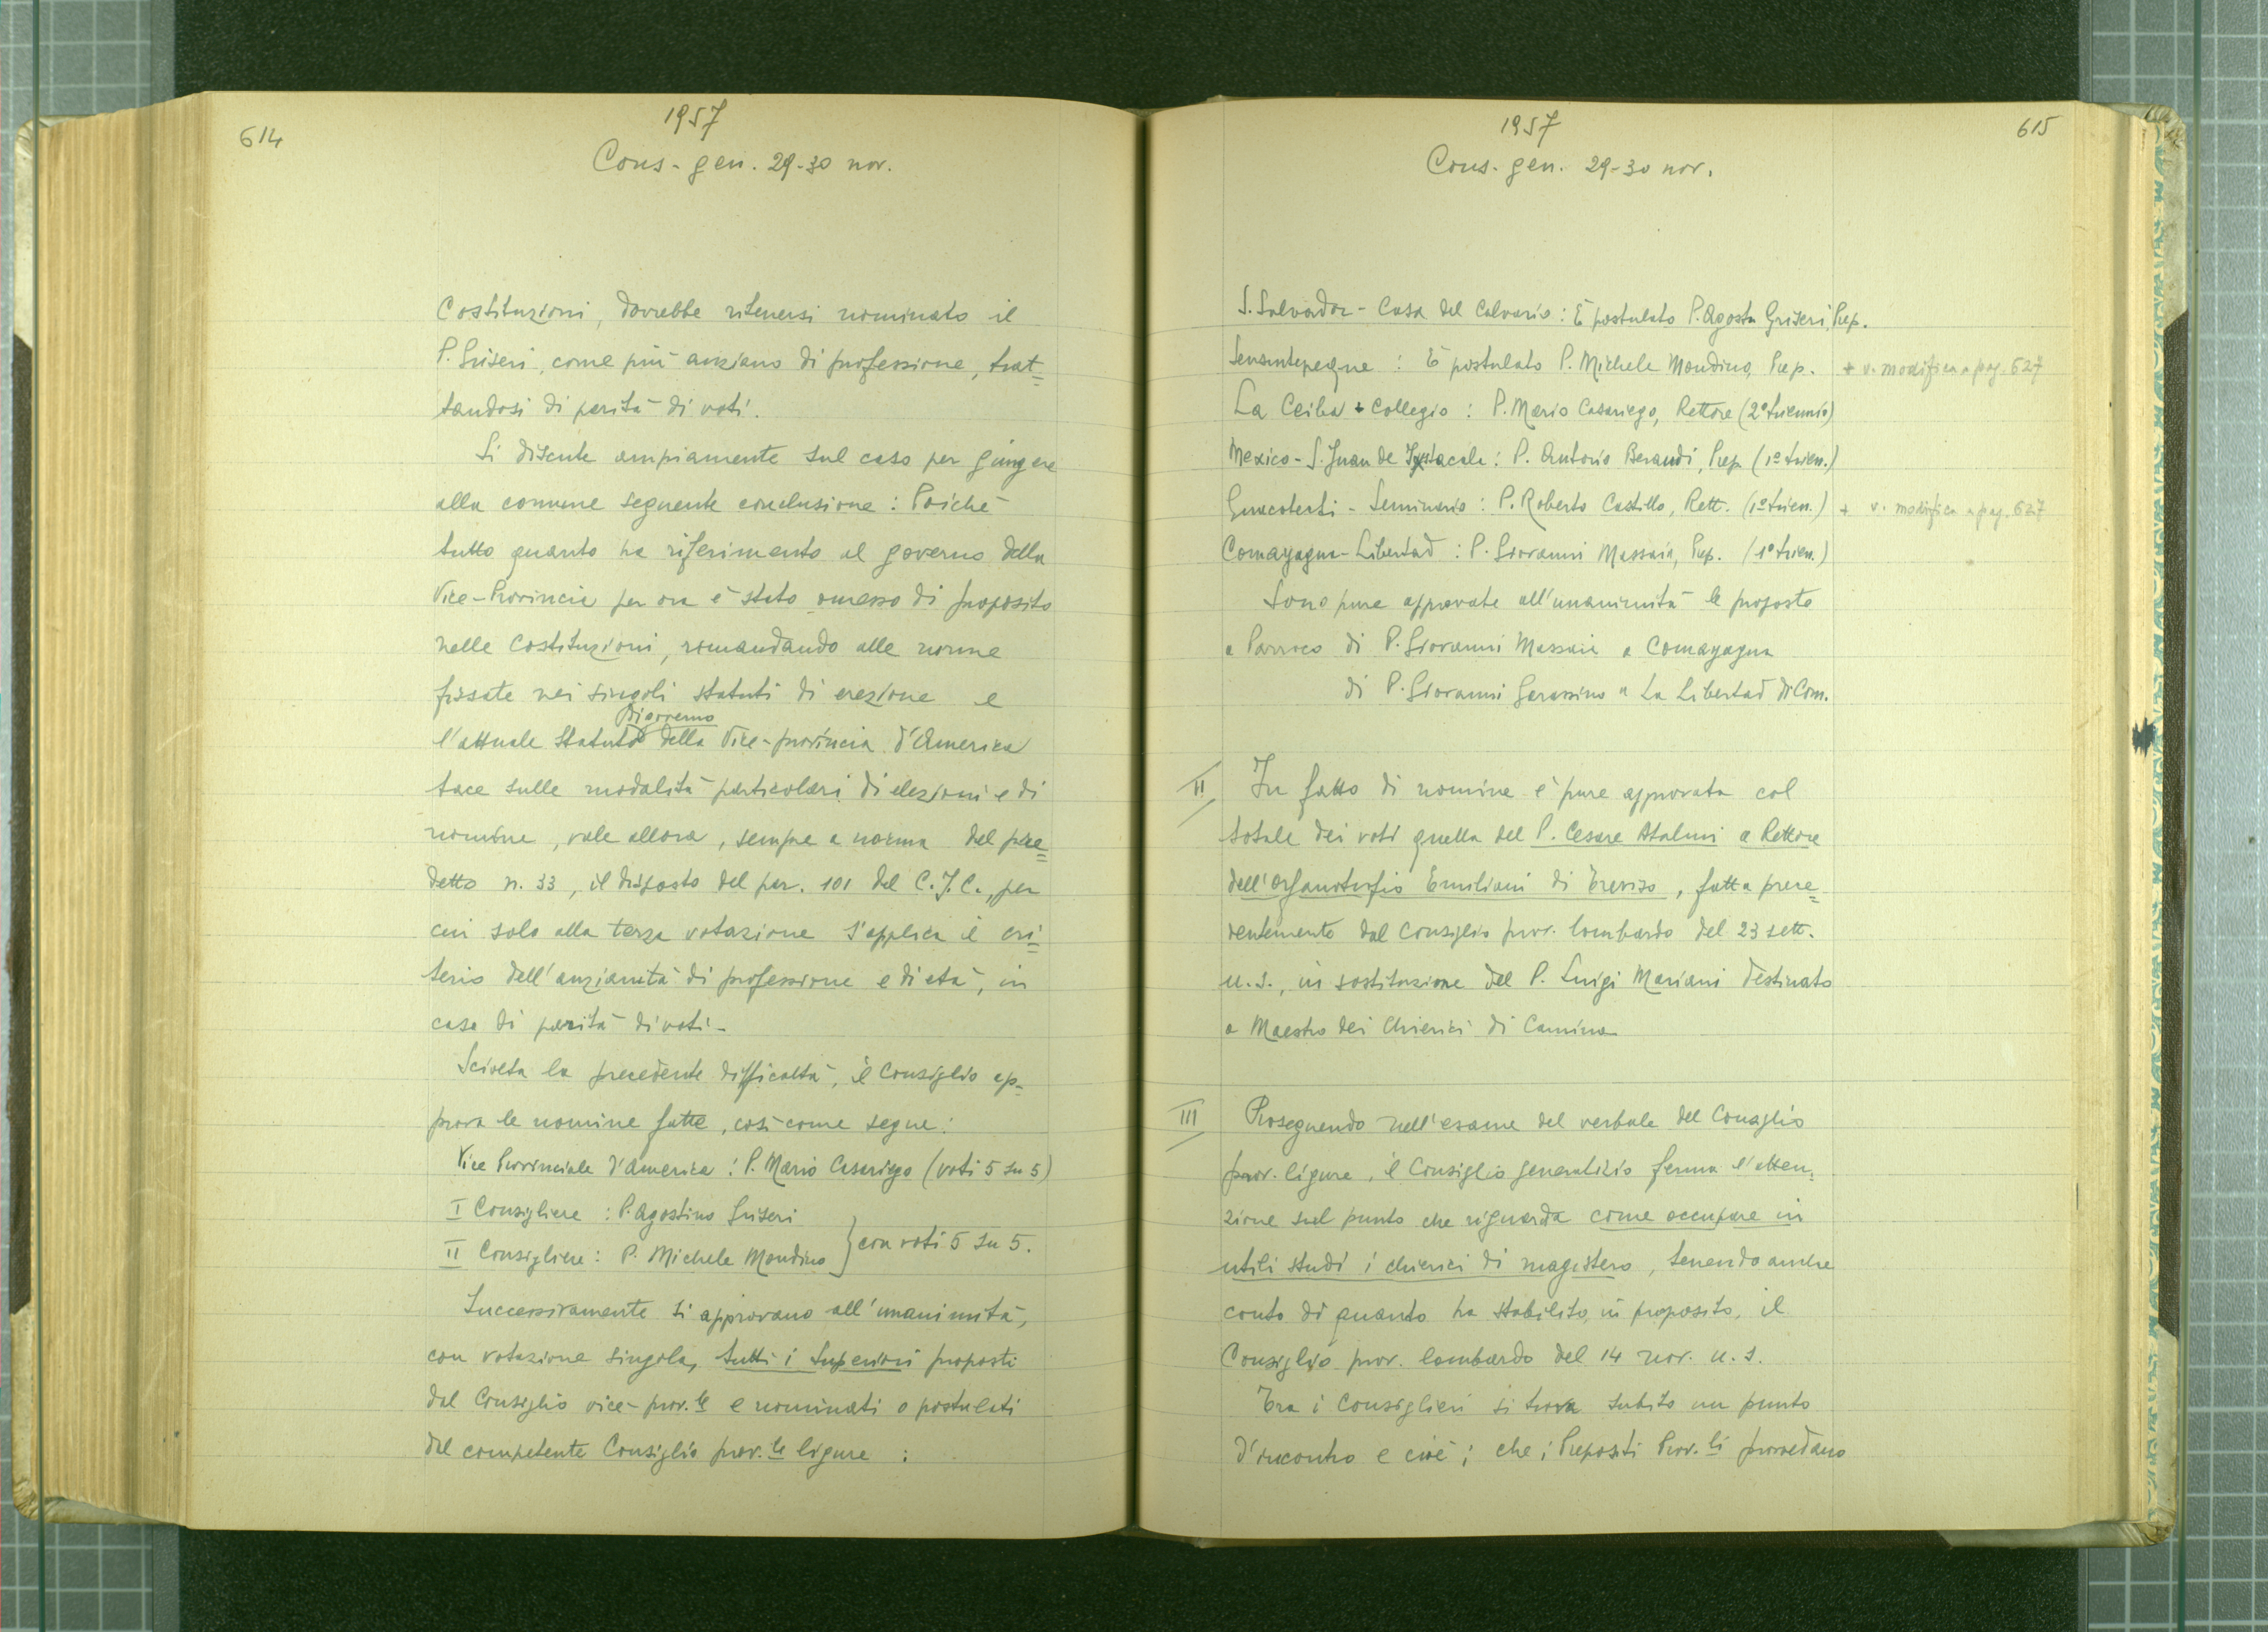 614
1957
Cons. gen. 29-30 nov.
Costituzioni, dovrebbe ritenersi nominato il
P. Griseri, come più anziano di professione, trat=
tandosi di parità di voti.
Si discute ampiamente sul caso per giungere
alla comune seguente conclusione: Poichè
tutto quanto ha riferimento al governo della
Vice-Provincia per ora è stato omesso di proposito
nelle Costituzioni, rimandando alle norme
fissate nei singoli statuti di erezione e
di governo
l'attuale Statuto della Vice-provincia d'America
tace sulle modalità particolari di elezioni e di
nomine, vale allora, sempre a norma del pre=
detto n. 33, il disposto del par. 101 del C.J.C., per
cui solo alla terza votazione s'applica il cri=
terio dell'anzianità di professione e di età, in
caso di parità di voti.-
Sciolta la precedente difficoltà, il Consiglio ap-
prova le nomine fatte, così come segue:
Vice Provinciale d'America: P. Mario Casariego (voti 5 su 5)
I Consigliere: P. Agostino Griseri
II Consigliere: P. Michele Mondino } con voti 5 su 5.
Successivamente si approvano all'unanimità,
con votazione singola, tutti i Superiori proposti
dal Consiglio vice-prov.le e nominati o postulati
dal competente Consiglio prov.le ligure:
1957
615
Cons. gen. 29-30 nov.
S. Salvador - Casa del Calvario: È postulato P. Agost. Griseri, Prep.
Sensuntepeque: È postulato P. Michele Mondino, Prep. + v. modifica a pag. 627
La Ceiba + Collegio: P. Mario Casariego, Rettore (2° triennio)
Mexico - S. Juan de Ixtacala: P. Antonio Beraudi, Prep. (1° trien.)
Guacotecti - Seminario: P. Roberto Castillo, Rett. (1° trien.) + v. modifica a pag. 627
Comayagua-Libertad: P. Giovanni Massaia, Prep. (1° trien.)
Sono pure approvate all'unanimità le proposte
a Parroco di P. Giovanni Massaia a Comayagua
di P. Giovanni Garassino a La Libertad di Com.
II In fatto di nomine è pure approvata col
totale dei voti quella del P. Cesare Atalmi a Rettore
dell'Orfanotrofio Emiliani di Treviso, fatta prece=
dentemente dal Consiglio prov. lombardo del 23 sett.
u.s., in sostituzione del P. Luigi Mariani destinato
a Maestro dei Chierici di Camino
III Proseguendo nell'esame del verbale del Consiglio
prov. ligure, il Consiglio generalizio ferma l'atten=
zione sul punto che riguarda come occupare in
utili studi i chierici di magistero, tenendo anche
conto di quanto ha stabilito, in proposito, il
Consiglio prov. lombardo del 14 nov. u.s.
Tra i Consiglieri si trova subito un punto
d'incontro e cioè: che i Prepositi Prov.li provvedano